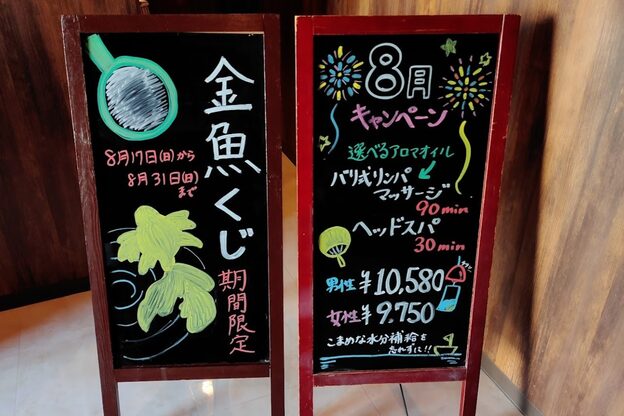 金魚くじ
8月17日(日)から
8月31日(日)
まで
期間限定
8月
キャンペーン
選べるアロマオイル
バリ式リンパ
マッサージ
90min
ヘッドスパ
30min
男性¥10,580
女性¥9,750
こまめな水分補給を
忘れずに!!